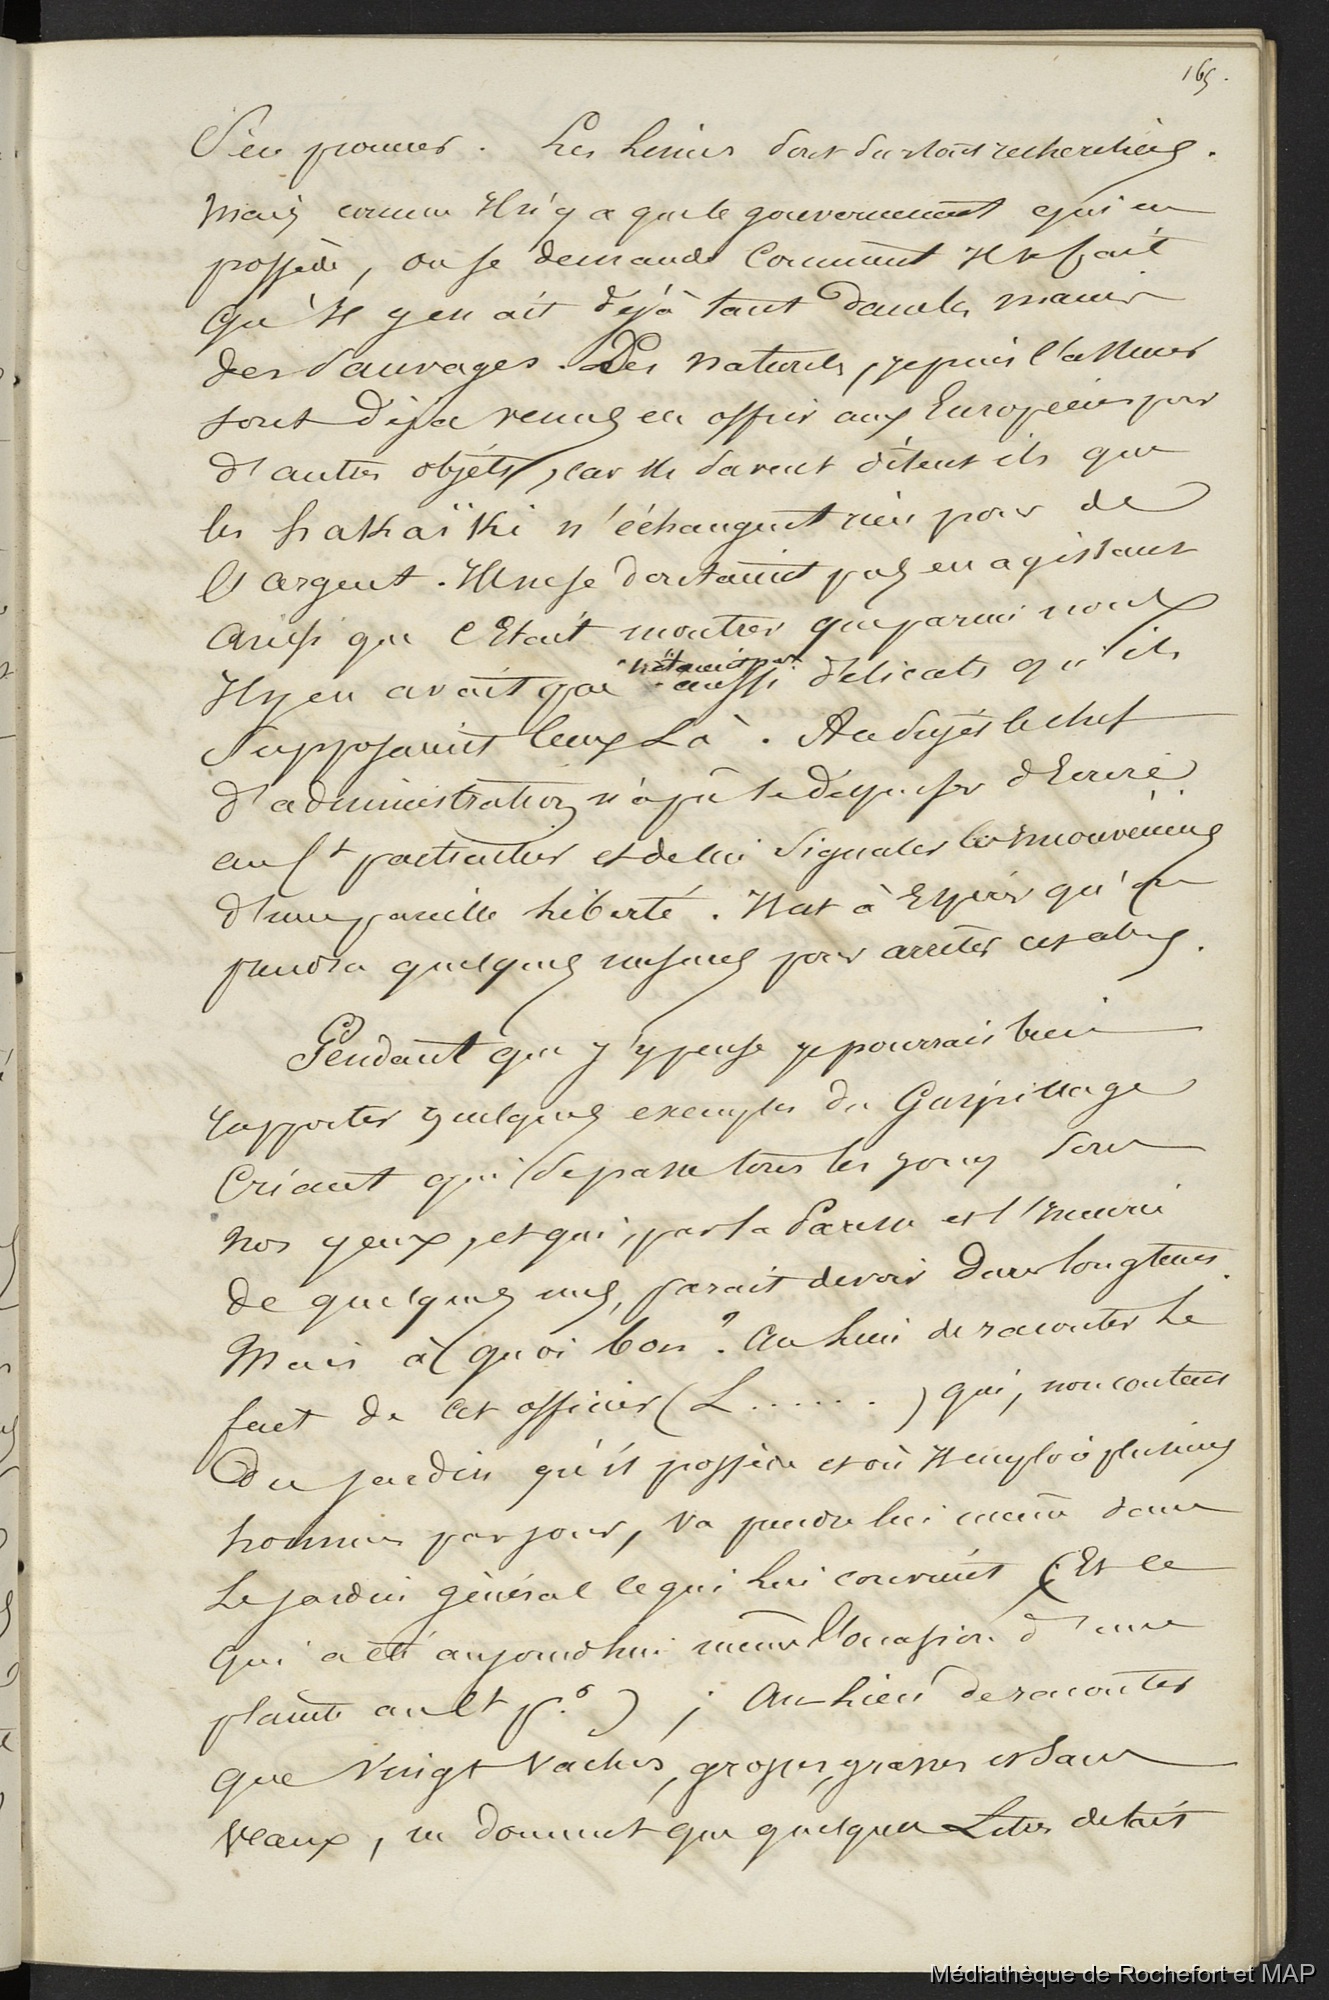 165.
S'en procurer. Les limes sont surtout recherchées.
Mais comme Il n'y a que le gouvernement qui en
possède, on se demande Comment Il se fait
qu'Il y en ait déjà tant dans les mains
des Sauvages. Des naturels, je puis l'assurer
sont déja venus en offrir aux Européens pour
d'autres objets, car Ils savent disent ils que
les hakaïki n'échangent rien pour de
l'argent. Ils ne se doutaient pas en agissant
ainsi que C'Etait montrer que parmi nous
Il y en avait qui n'étaient pas aussi délicats qu'ils
supposaient ceux Là. Au sujet le chef
d'administration n'a pu se dispenser d'Ecrire
au Ct particulier et de lui signaler les mouvements
d'une pareille liberté. Il est à Espérer qu'on
prendra quelques mesures pour arrêter cet abus.
Pendant que j'y pense je pourrais bien
rapporter quelques exemples du Gaspillage
Criant qui se passe tous les jours sous
nos yeux, et qui, par la Paresse et l'Incurie
de quelques uns, parait devoir durer longtems.
Mais à quoi bon? Au lieu de raconter Le
fait de cet officier (L......) qui, non content
Du jardin qu'il possède et où Il emploi plusieurs
hommes par jour, va prendre lui même dans
Le jardin général ce qui Lui convient (Et ce
qui a été aujourd'hui même l'occasion d'une
plainte au Ct pr.); Au lieu de raconter
que Vingt Vaches, grosses, grasses et sans
veaux, ne donnent que quelques Litres de lait
Médiathèque de Rochefort et MAP